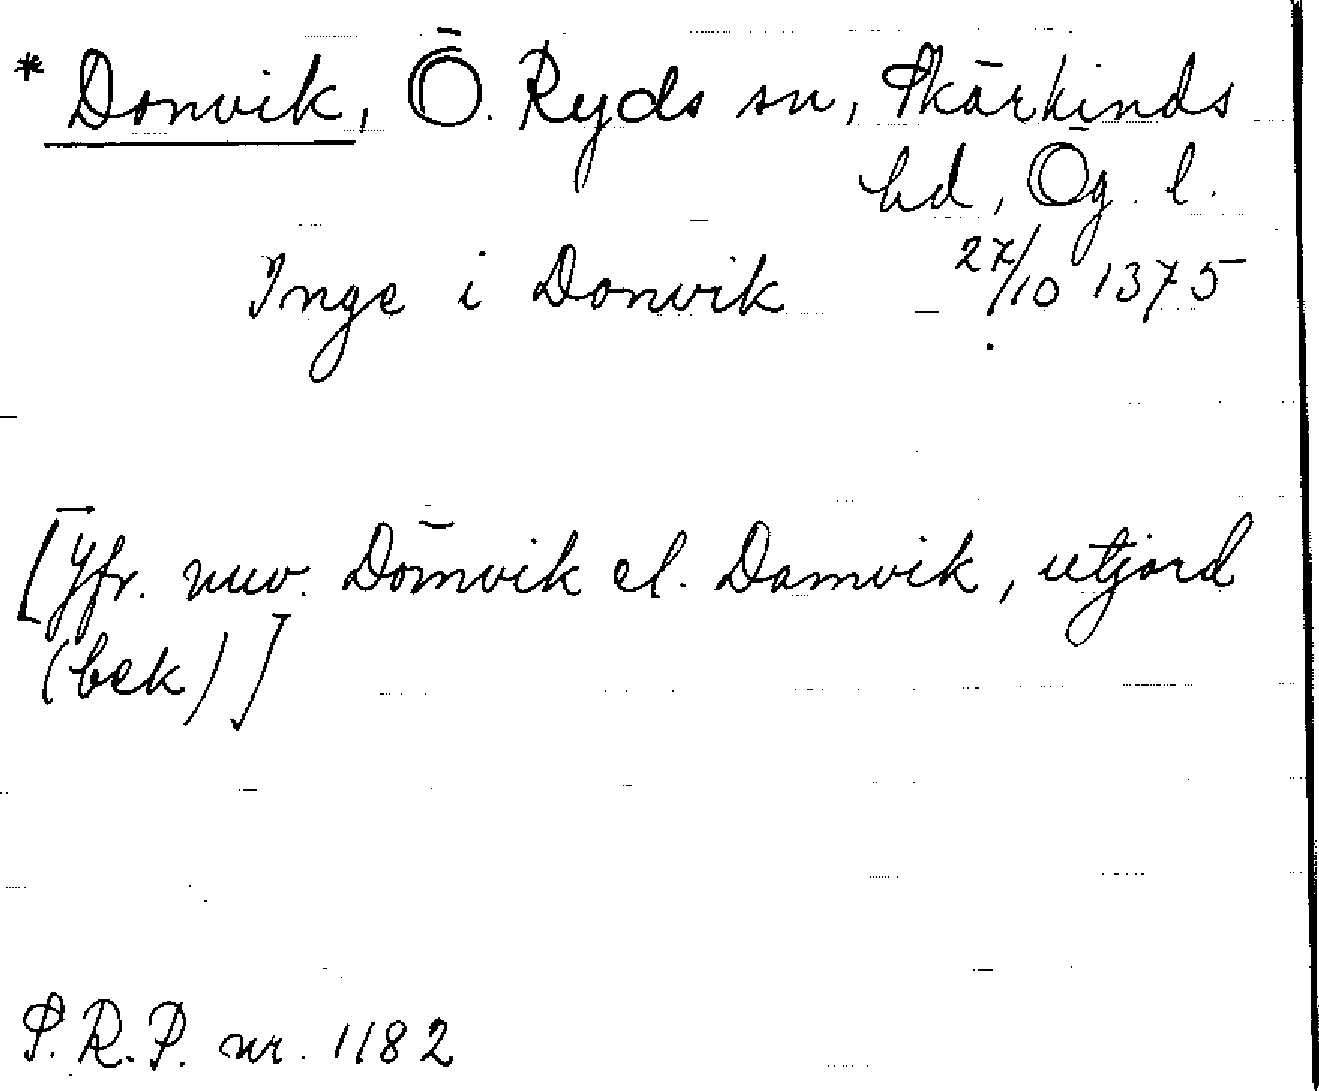 * Donvik, Ö. Ryds sn, Skärkinds
hd, Ög. l.
Inge i Donvik 27/10 1375
[Jfr. nuv. Domvik el. Damvik, utjord
(bek)]
S.R.P. nr. 1182